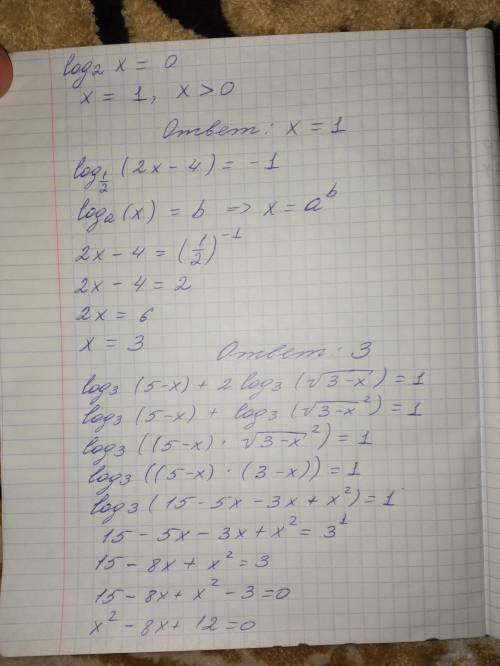 log₂ x = 0
x = 1, x > 0
Ответ: x = 1
log_{1/2} (2x - 4) = -1
logₐ(x) = b => x = a^b
2x - 4 = (1/2)^{-1}
2x - 4 = 2
2x = 6
x = 3
Ответ: 3
log₃ (5-x) + 2 log₃ (√(3-x)) = 1
log₃ (5-x) + log₃ (√(3-x)²) = 1
log₃ ((5-x) · √(3-x)²) = 1
log₃ ((5-x) · (3-x)) = 1
log₃ (15 - 5x - 3x + x²) = 1
15 - 5x - 3x + x² = 3¹
15 - 8x + x² = 3
15 - 8x + x² - 3 = 0
x² - 8x + 12 = 0